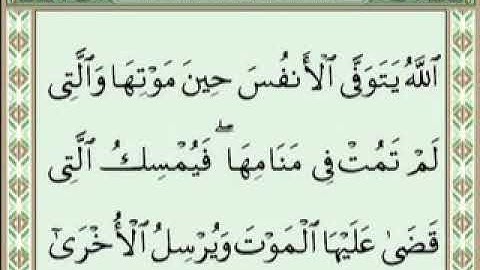 ٱللَّهُ يَتَوَفَّى ٱلْأَنفُسَ حِينَ مَوْتِهَا وَٱلَّتِى
لَمْ تَمُتْ فِى مَنَامِهَا ۖ فَيُمْسِكُ ٱلَّتِى
قَضَىٰ عَلَيْهَا ٱلْمَوْتَ وَيُرْسِلُ ٱلْأُخْرَىٰٓ